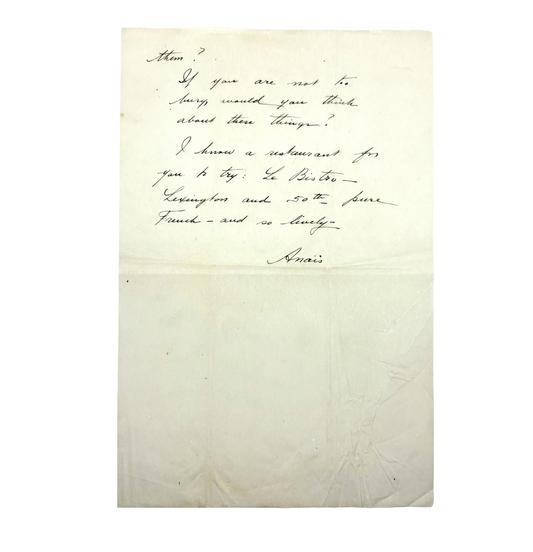 them?
If you are not too
busy, would you think
about these things?
I know a restaurant for
you to try: Le Bistro —
Lexington and 50th pure
French — and so lively —
Anaïs